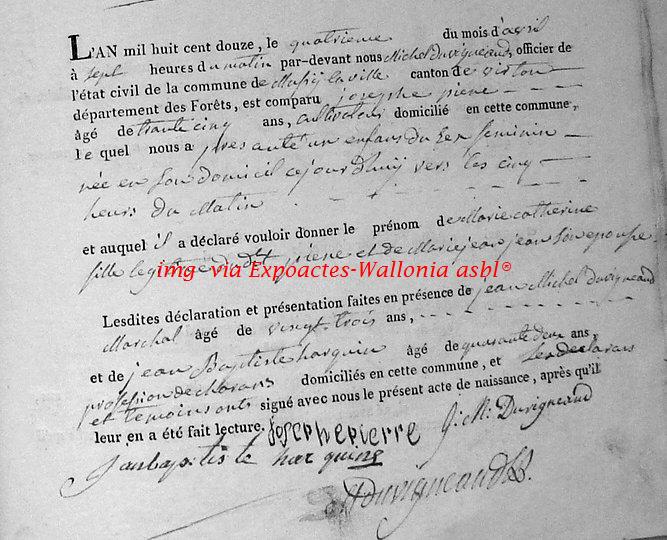 L'AN mil huit cent douze, le quatrieme du mois d'avril
à sept heures du matin par-devant nous Michel Duvigneaud, officier de
l'état civil de la commune de Musÿ la ville canton de virton
département des Forêts, est comparu josephe piere
âgé de trante cinq ans, cultivateur domicilié en cette commune,
le quel nous a presanté un enfans du sex feminin
née en son domicil cejourdhuÿ vers les cinq
heurs du Matin
et auquel il a déclaré vouloir donner le prénom de Marie catherine
fille legitime dudt piere et de Mariejean jean son epouse
img- via Expoactes-Wallonia asbl®
Lesdites déclaration et présentation faites en présence de jean Michel duvigneaud
Marchal âgé de vingt trois ans,
et de jean Baptiste harquin âgé de quarante deux ans,
profession de domiciliés en cette commune, et les declarans
et temoins onts signé avec nous le présent acte de naissance, après qu'il
leur en a été fait lecture. josephepierre J. M. Duvigneaud
janbaptiste harquing
Duvigneaud